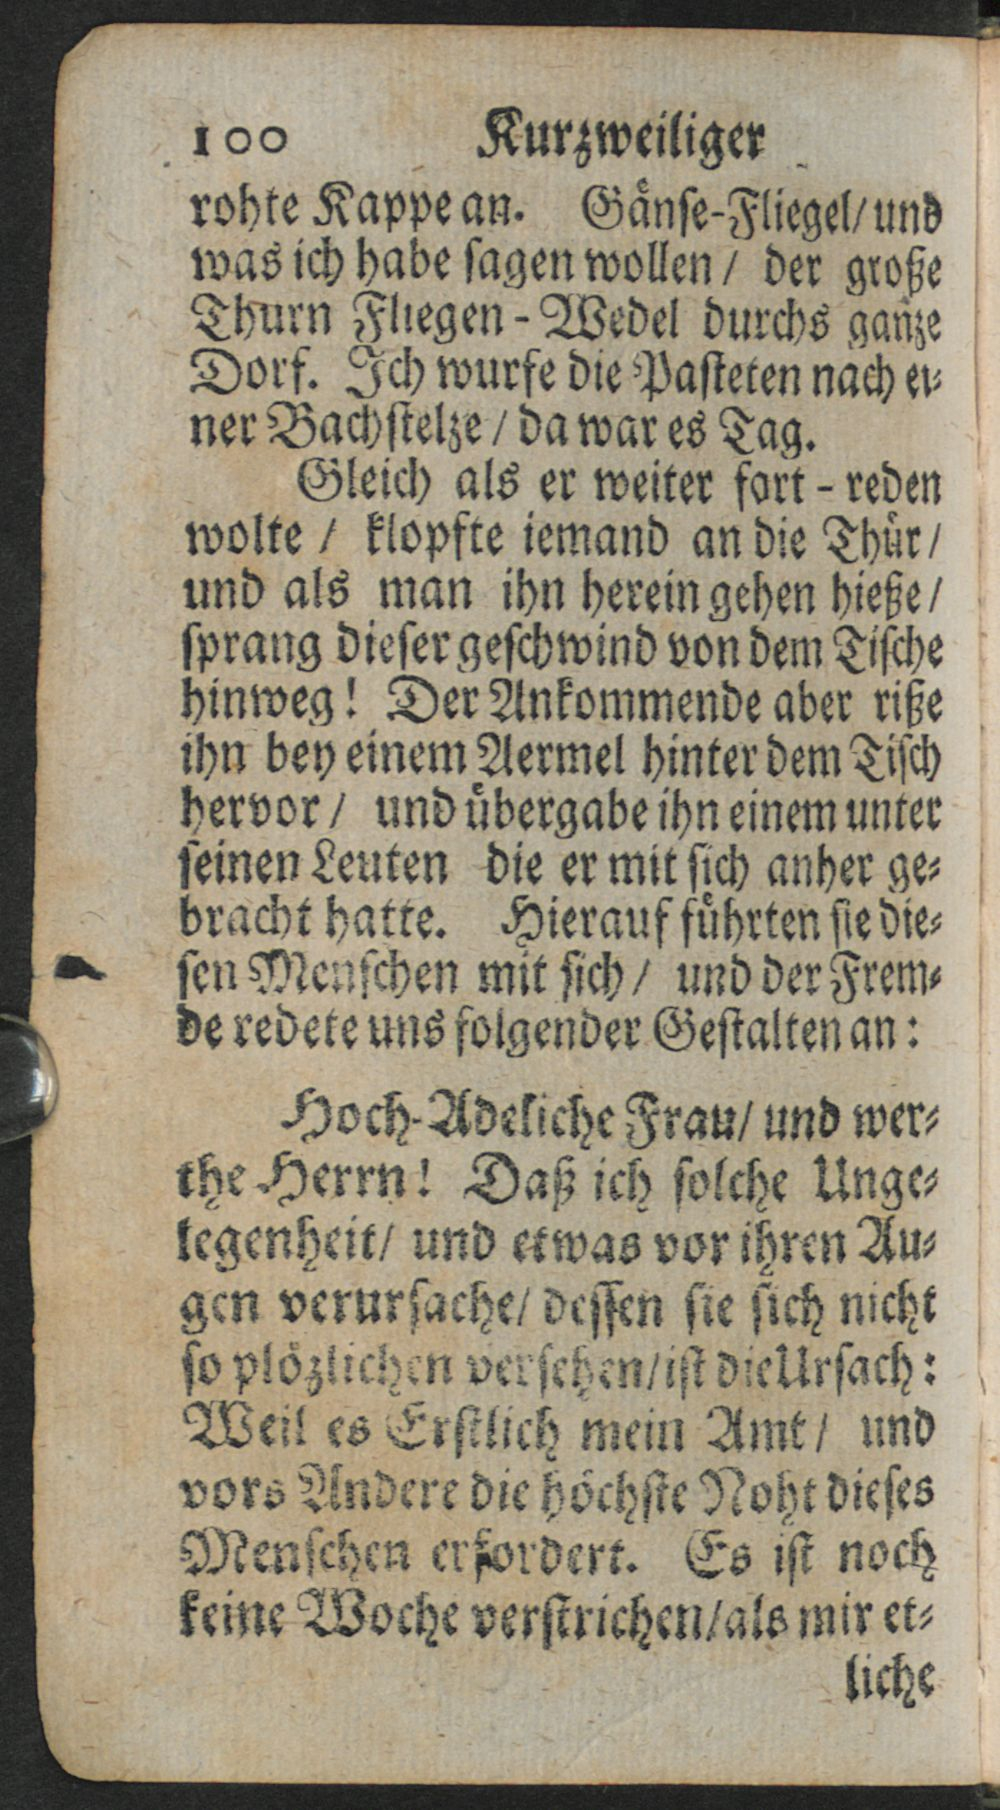 100 Kurzweiliger
rohte Kappe an. Gänse-Fliegel/ und
was ich habe sagen wollen / der große
Thurn Fliegen - Wedel durchs ganze
Dorf. Ich wurfe die Pasteten nach ei-
ner Bachstelze / da war es Tag.
Gleich als er weiter fort - reden
wolte / klopfte iemand an die Thür /
und als man ihn herein gehen hieße /
sprang dieser geschwind von dem Tische
hinweg! Der Ankommende aber riße
ihn bey einem Aermel hinter dem Tisch
hervor / und übergabe ihn einem unter
seinen Leuten die er mit sich anher ge-
bracht hatte. Hierauf führten sie die-
sen Menschen mit sich / und der Frem-
de redete uns folgender Gestalten an:
Hoch-Adeliche Frau/ und wer-
the Herrn! Daß ich solche Unge-
legenheit/ und etwas vor ihren Au-
gen verursache/ dessen sie sich nicht
so plözlichen versehen/ ist die Ursach:
Weil es Erstlich mein Amt / und
vors Andere die höchste Noht dieses
Menschen erfordert. Es ist noch
keine Woche verstrichen/ als mir et-
liche